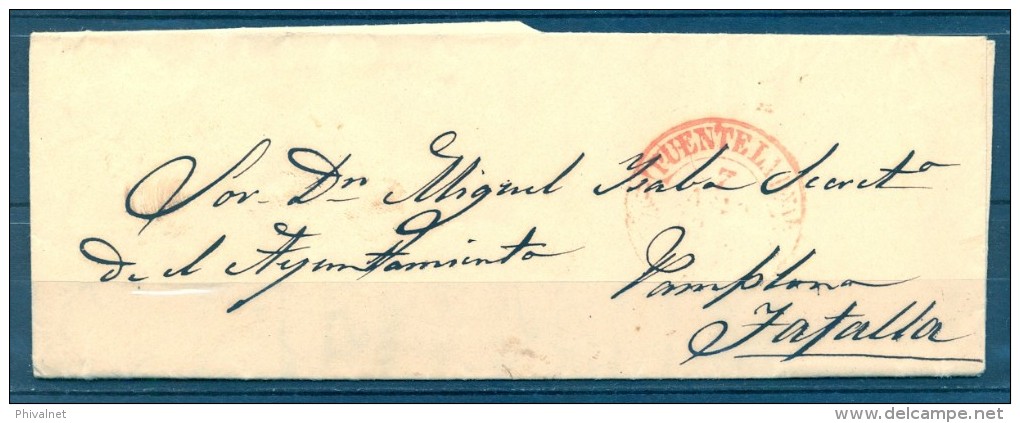 PUENTE LA
7
Sor. Dn Miguel Ysaba Secreto
de el Ayuntamiento
Pamplona
Tafalla
Phivalnet
delcampe.net